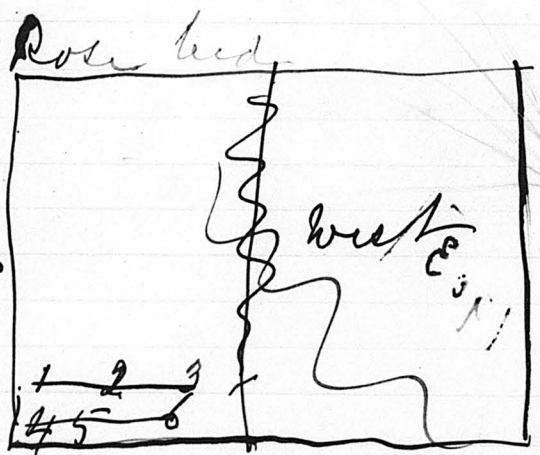 Rose bed
West
1 2 3
4 5